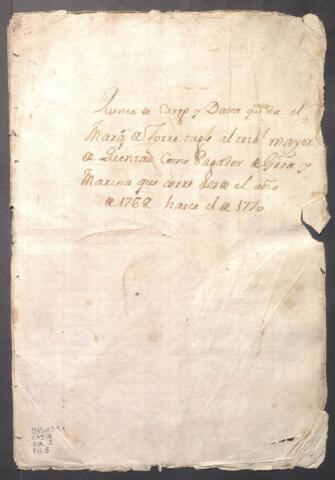 de Cargo y Data que da el
Marq.s de Torre tagle al trib.l mayor
de Quentas como Pagador de Grra y
Marina que corre desde el año
de 1768 hasta el de 1770